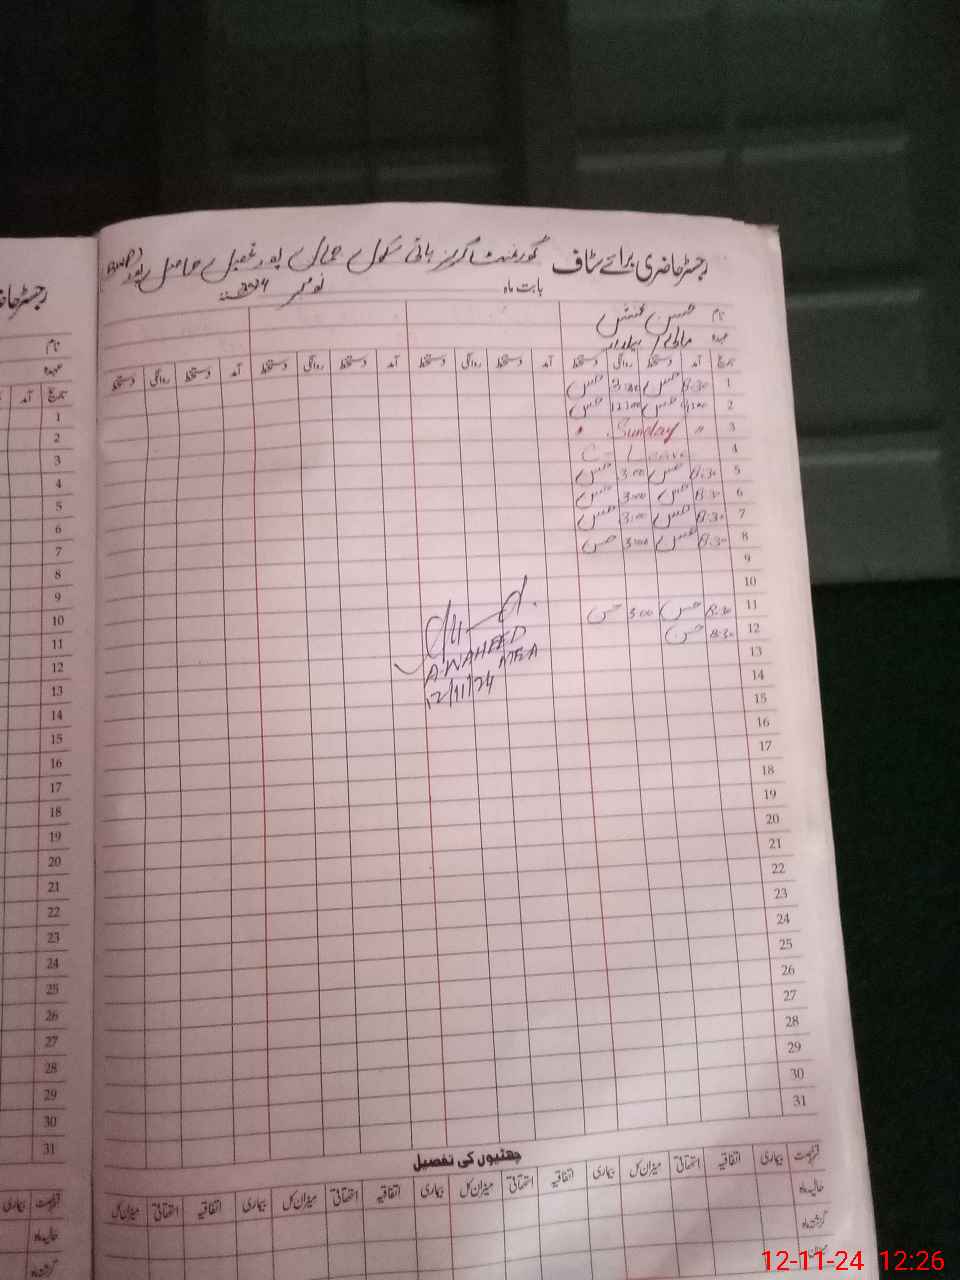 رجسٹر حاضری برائے سٹاف گورنمنٹ گرلز ہائی سکول جمال پور تحصیل حاصل پور (BWP)
بابت ماہ نومبر
نام
عہدہ مالی / بیلدار
تاریخ آمد دستخط روانگی دستخط آمد دستخط روانگی دستخط آمد دستخط روانگی دستخط آمد دستخط روانگی دستخط
1 8:30 3:00
2 12:00
3 " Sunday "
4 C- Leave
5 8:30 3:00
6 8:30 3:00
7 8:30 3:00
8 8:30 3:00
9
10
11 8:30 3:00
12 8:30
A.WAHEED
MEA
12/11/24
13
14
15
16
17
18
19
20
21
22
23
24
25
26
27
28
29
30
31
چھٹیوں کی تفصیل
قسم رخصت بیماری اتفاقیہ استحقاقی میزان کل بیماری اتفاقیہ استحقاقی میزان کل بیماری اتفاقیہ استحقاقی میزان کل بیماری اتفاقیہ استحقاقی میزان کل
حالیہ ماہ
گزشتہ ماہ
نام
عہدہ
تاریخ آمد
1
2
3
4
5
6
7
8
9
10
11
12
13
14
15
16
17
18
19
20
21
22
23
24
25
26
27
28
29
30
31
قسم رخصت بیماری
حالیہ ماہ
گزشتہ ماہ
12-11-24 12:26